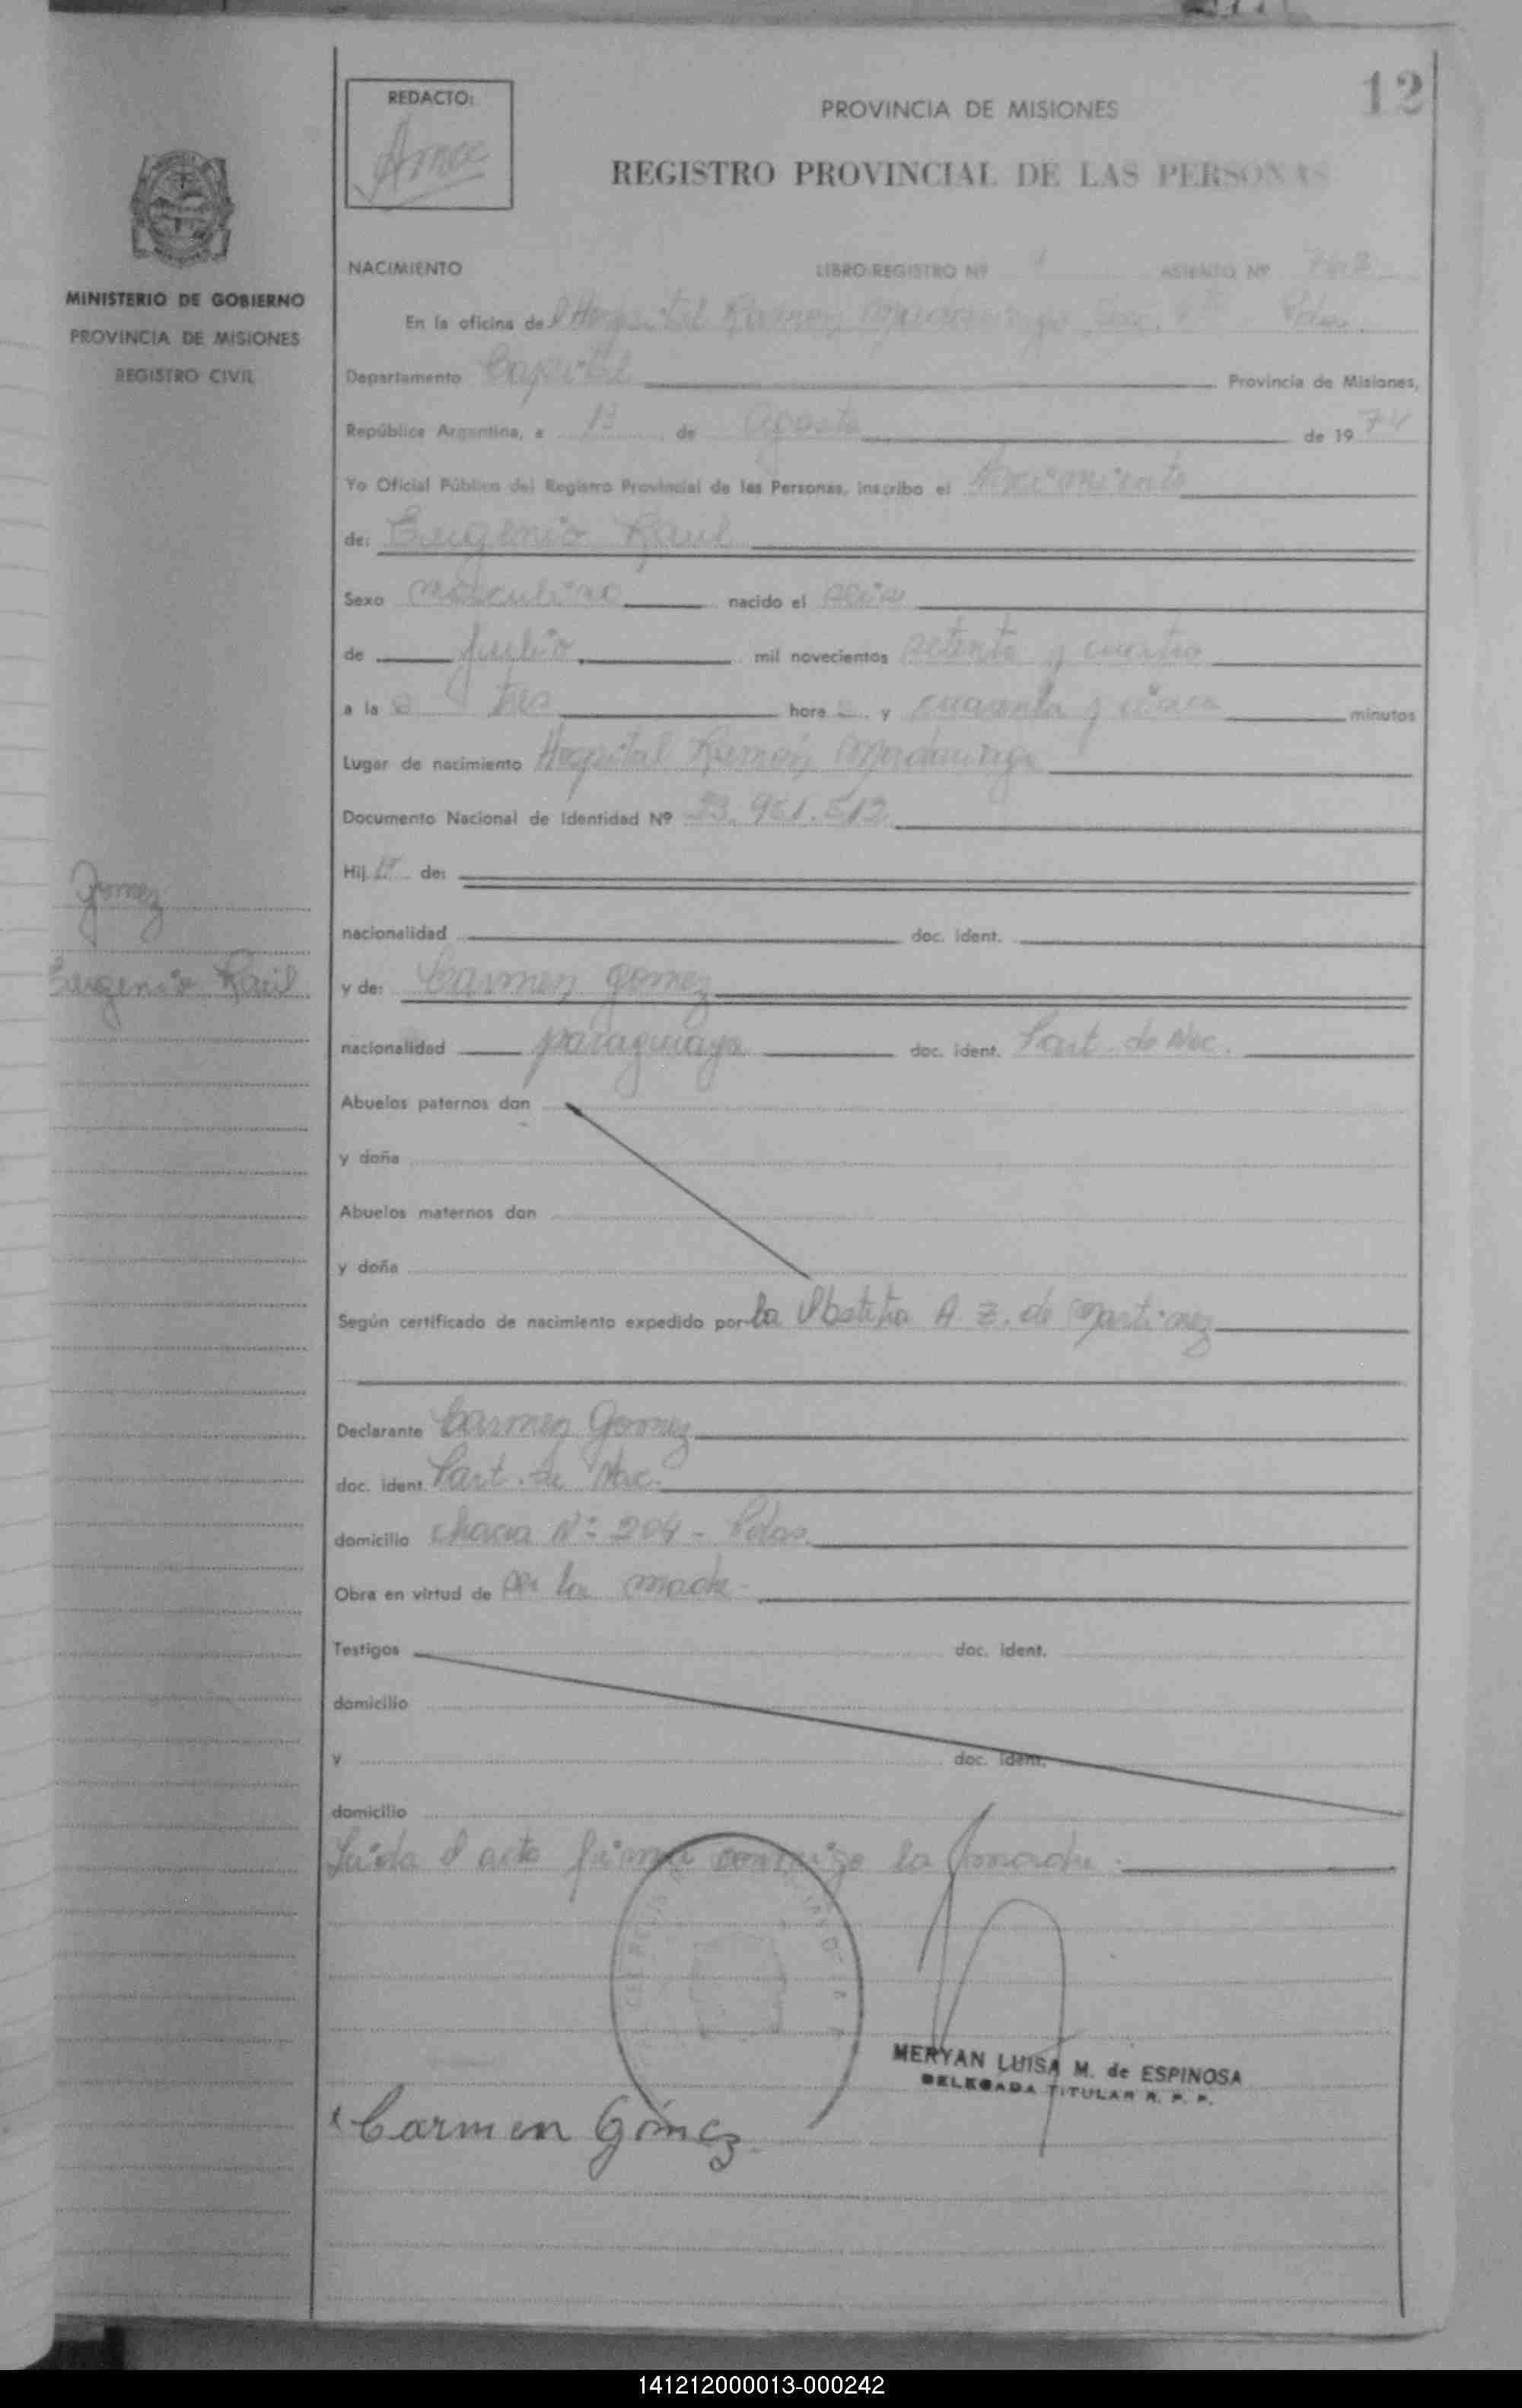 12
REDACTO:
PROVINCIA DE MISIONES
REGISTRO PROVINCIAL DE LAS PERSONAS
MINISTERIO DE GOBIERNO
PROVINCIA DE MISIONES
REGISTRO CIVIL
NACIMIENTO LIBRO REGISTRO Nº ASIENTO Nº
En la oficina del Hospital Ramón Madariaga Sec. Pdas.
Departamento Capital Provincia de Misiones,
República Argentina, a 1º de Agosto de 1974
Yo Oficial Público del Registro Provincial de las Personas, inscribo el Nacimiento
de: Eugenio Raul
Sexo masculino nacido el
de Julio mil novecientos setenta y cuatro
a la s tres hora s y cuarenta y cinco minutos
Lugar de nacimiento Hospital Ramón Madariaga
Documento Nacional de Identidad Nº 23.951.512
Hij o de:
nacionalidad doc. ident.
Gomez
Eugenio Raúl
y de: Carmen Gomez
nacionalidad paraguaya doc. ident. Part. de Nac.
Abuelos paternos don
y doña
Abuelos maternos don
y doña
Según certificado de nacimiento expedido por la Obstetra A. Z. de Martinez
Declarante Carmen Gomez
doc. ident. Part. de Nac.
domicilio chacra Nº 204 - Pdas.
Obra en virtud de ser la madre
Testigos doc. ident.
domicilio
y doc. ident.
domicilio
Leida el acta firma conmigo la madre.
MERYAN LUISA M. de ESPINOSA
DELEGADA TITULAR R. P. P.
Carmen Gómez
141212000013-000242